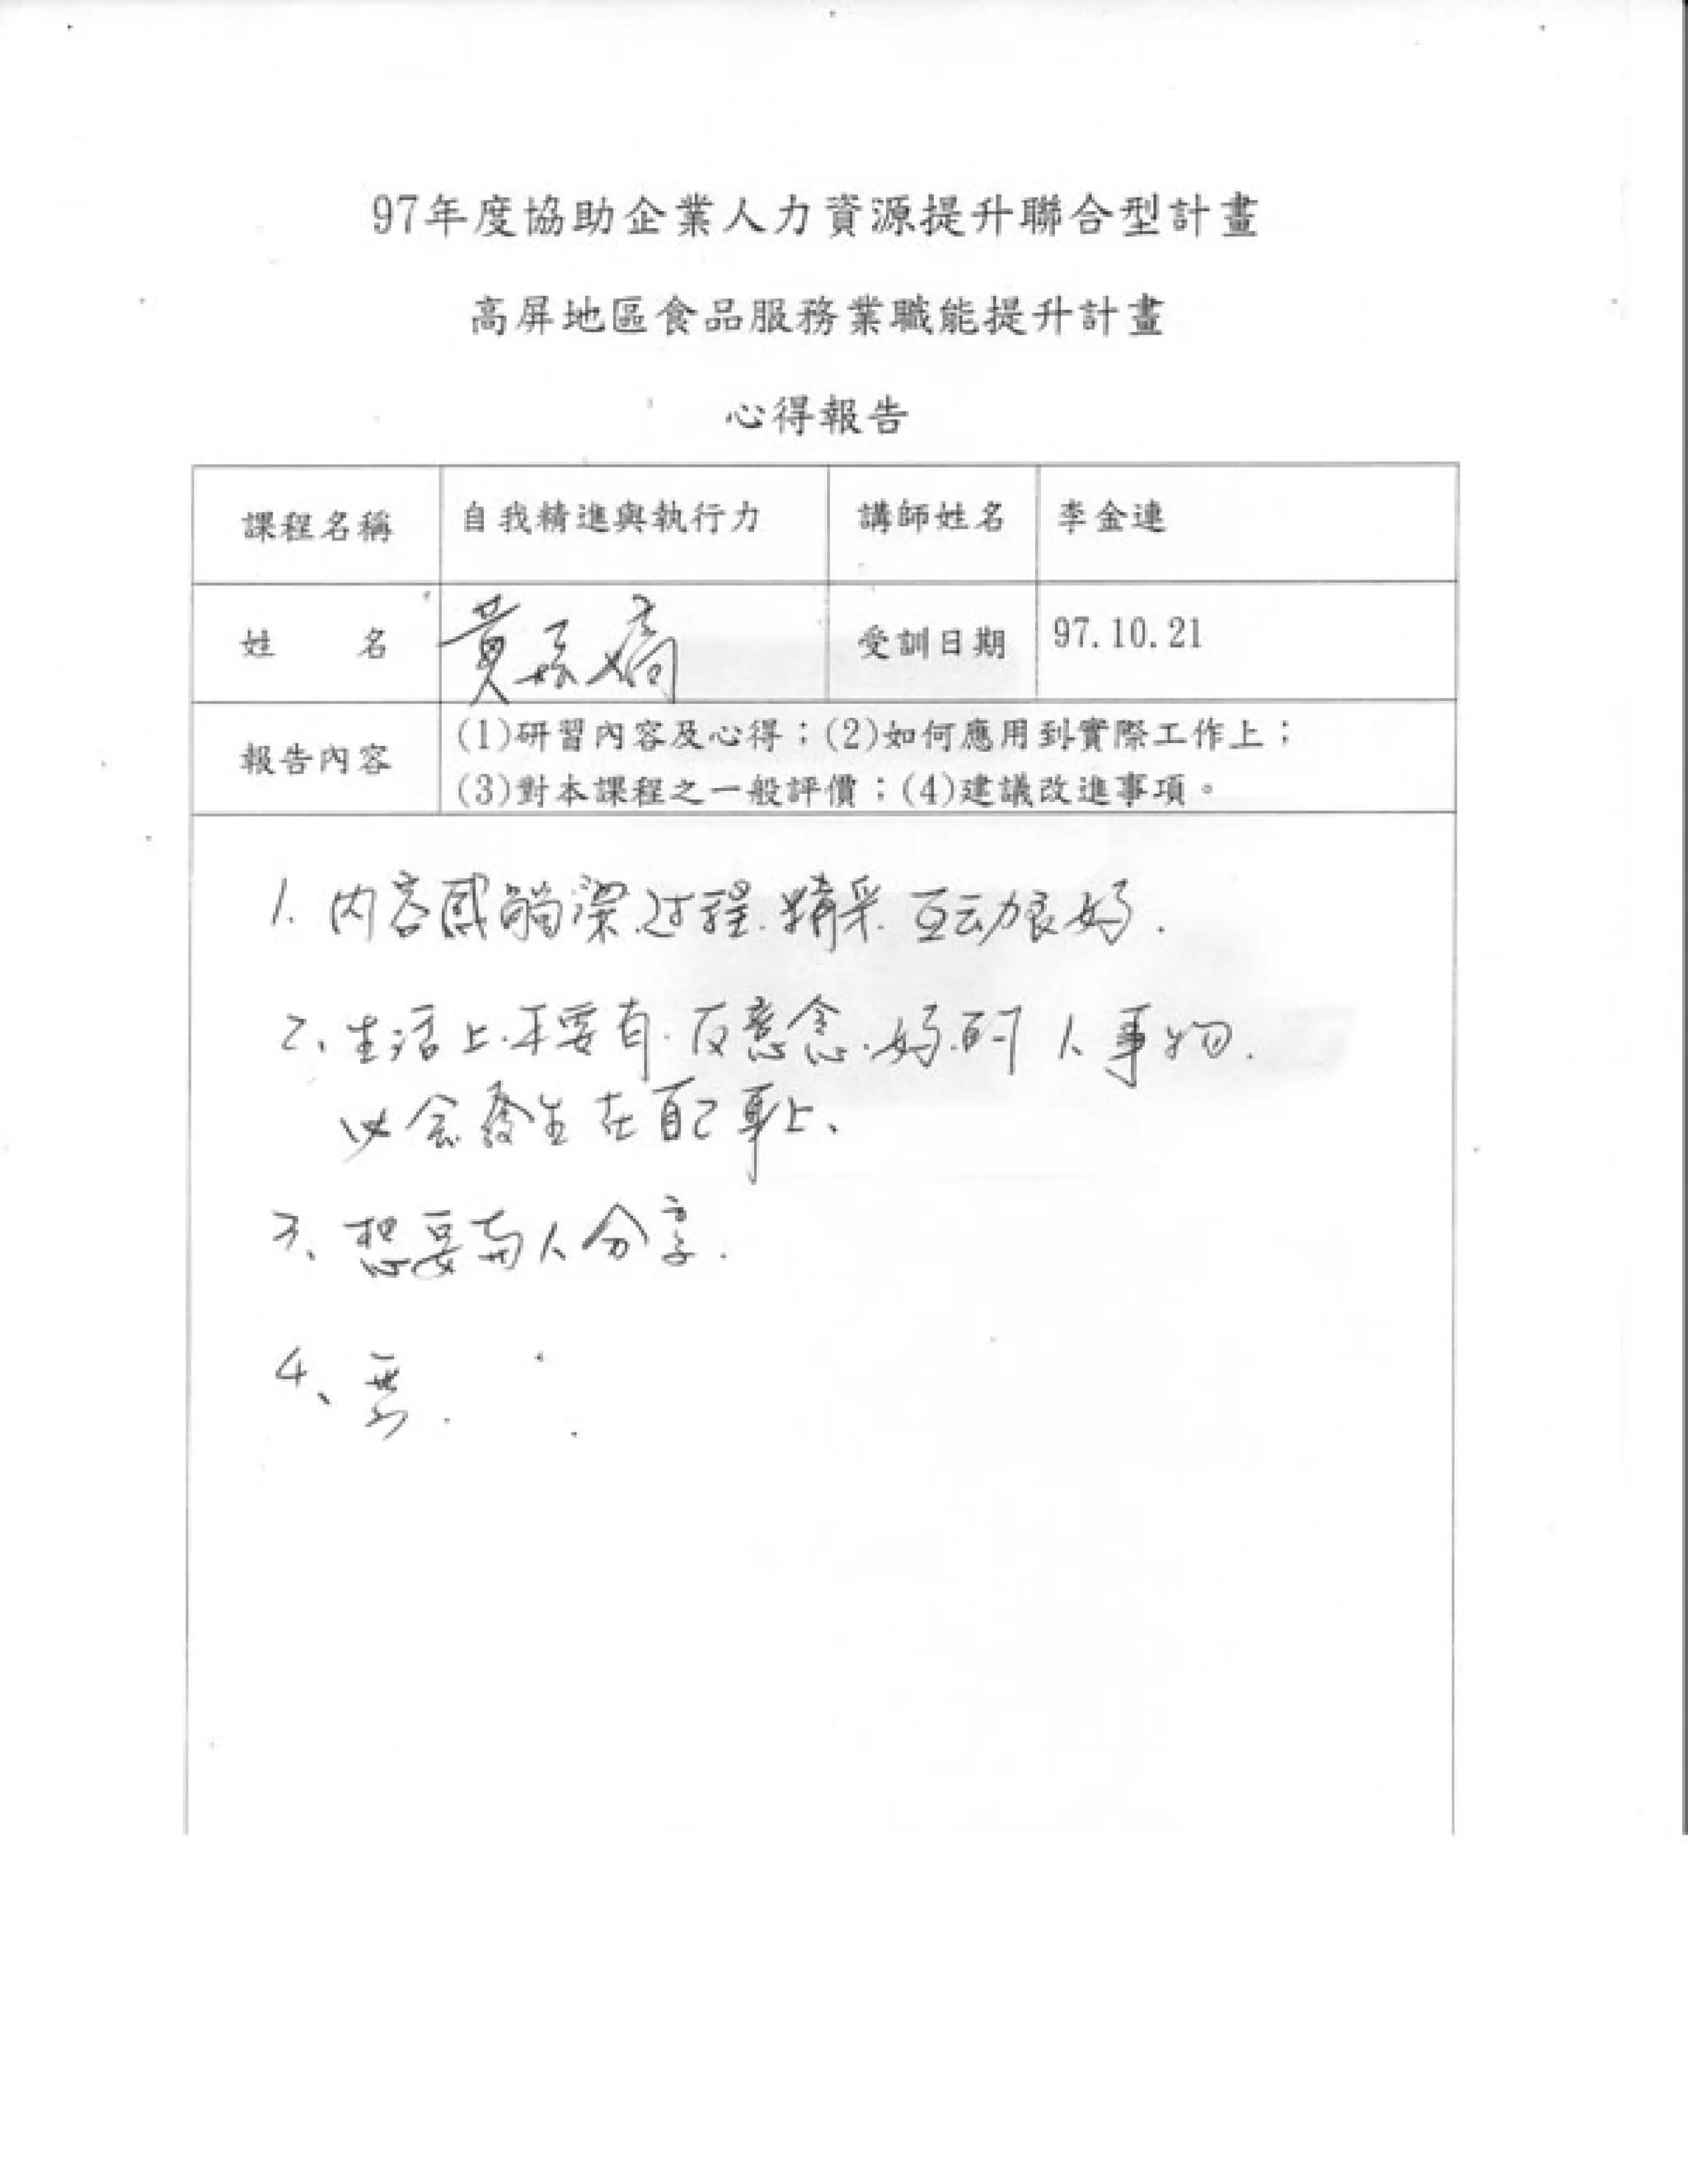 97年度協助企業人力資源提升聯合型計畫
高屏地區食品服務業職能提升計畫
心得報告
課程名稱 自我精進與執行力 講師姓名 李金連
姓 名 黃 嬌 受訓日期 97.10.21
報告內容 (1)研習內容及心得；(2)如何應用到實際工作上；
(3)對本課程之一般評價；(4)建議改進事項。
1. 内容感觸深.过程.精采.互动良好.
2、生活上.不要有.反意念.好的人事物.
必会發生在自己身上、
3、想要与人分享.
4、無.